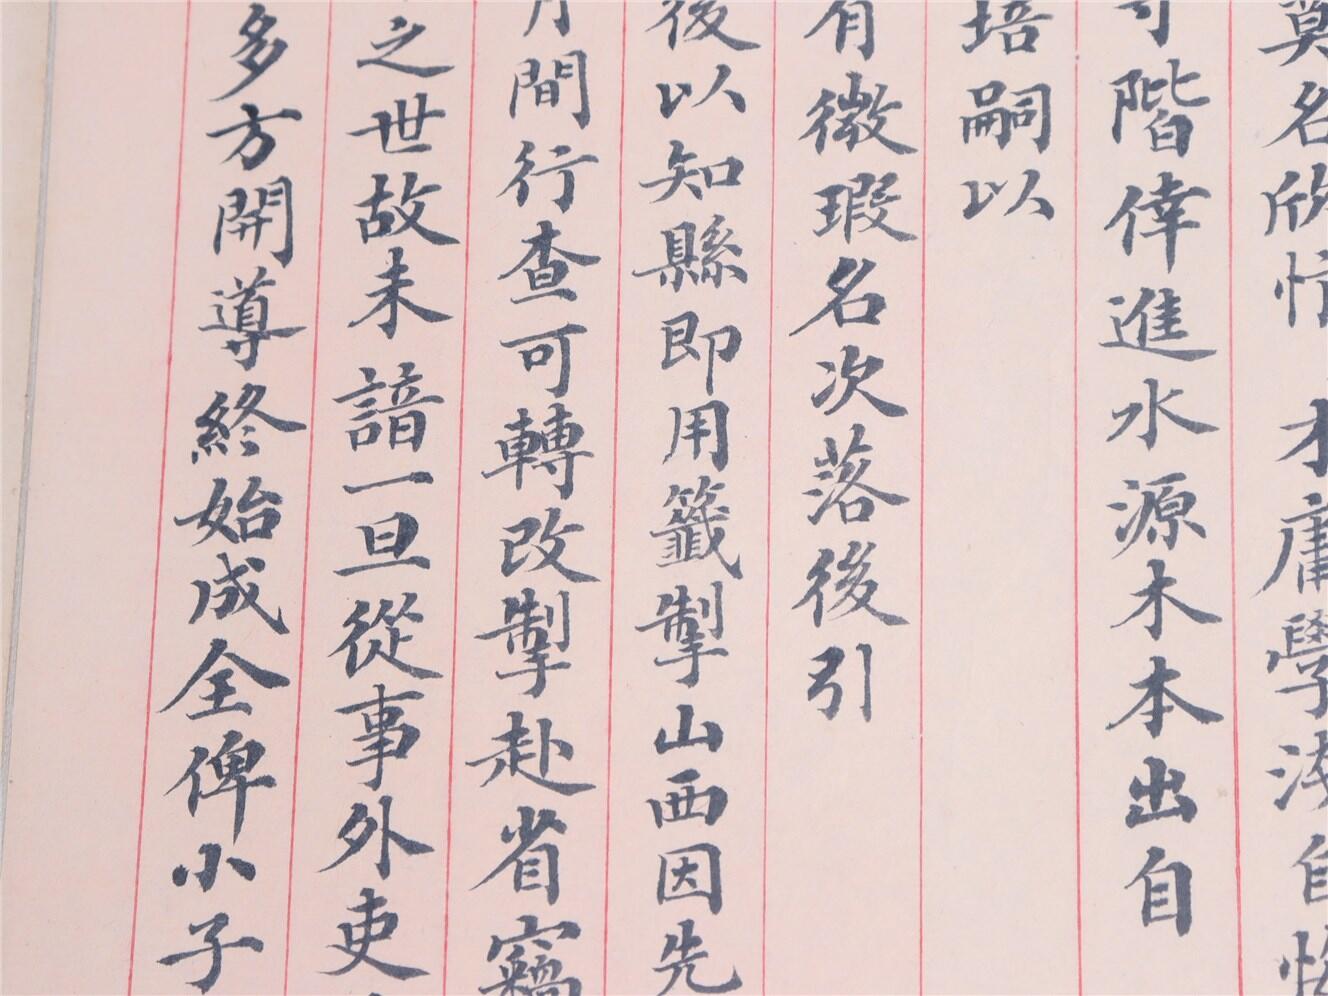 莫名欣忭
才庸學淺自
可階倖進水源木本出自
培嗣以
有微瑕名次落後引
後以知縣即用籤掣山西因先
月間行查可轉改掣赴省竊
之世故未諳一旦從事外吏
多方開導終始成全俾小子